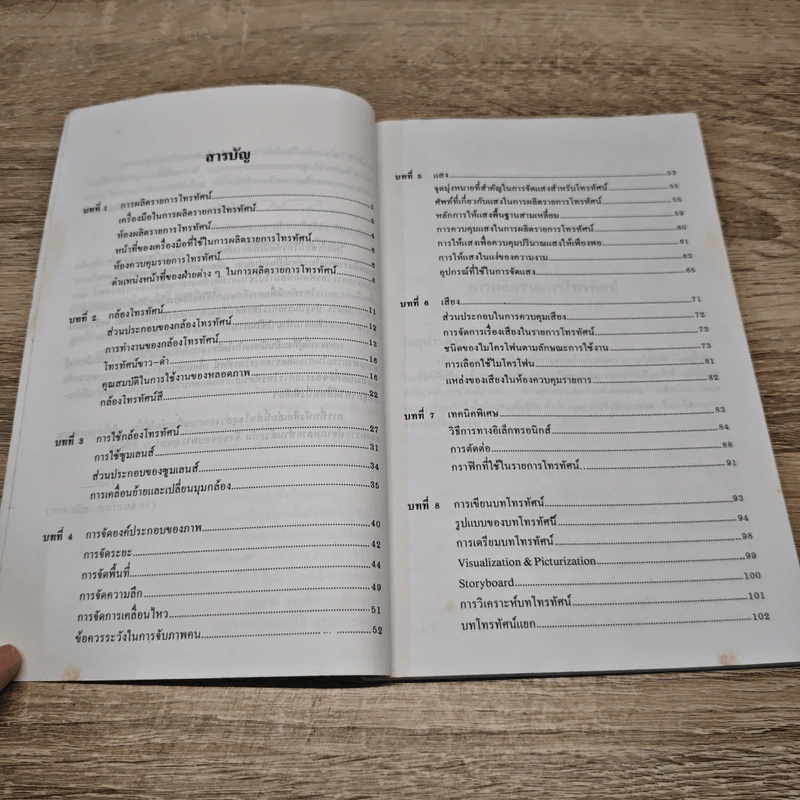 สารบัญ
บทที่ 1 การผลิตรายการโทรทัศน์ 1
เครื่องมือในการผลิตรายการโทรทัศน์ 3
ห้องผลิตรายการโทรทัศน์ 4
หน้าที่ของเครื่องมือที่ใช้ในการผลิตรายการโทรทัศน์ 6
ห้องควบคุมรายการโทรทัศน์
ตำแหน่งหน้าที่ของฝ่ายต่าง ๆ ในการผลิตรายการโทรทัศน์ 8
บทที่ 2 กล้องโทรทัศน์ 11
ส่วนประกอบของกล้องโทรทัศน์ 12
การทำงานของกล้องโทรทัศน์ 13
โทรทัศน์ขาว-ดำ 16
คุณสมบัติในการใช้งานของหลอดภาพ 16
กล้องโทรทัศน์สี 22
บทที่ 3 การใช้กล้องโทรทัศน์ 27
การใช้ซูมเลนส์ 31
ส่วนประกอบของซูมเลนส์ 34
การเคลื่อนย้ายและเปลี่ยนมุมกล้อง 35
บทที่ 4 การจัดองค์ประกอบของภาพ 40
การจัดระยะ 42
การจัดพื้นที่ 44
การจัดความลึก 49
การจัดการเคลื่อนไหว 51
ข้อควรระวังในการจับภาพคน 52
บทที่ 5 แสง 52
จุดมุ่งหมายที่สำคัญในการจัดแสงสำหรับโทรทัศน์ 55
ศัพท์ที่เกี่ยวกับแสงในการผลิตรายการโทรทัศน์ 55
หลักการให้แสงพื้นฐานสามเหลี่ยม 59
การควบคุมแสงในการผลิตรายการโทรทัศน์ 60
การให้แสงเพื่อควบคุมปริมาณแสงให้เพียงพอ 61
การให้แสงในแง่ของความงาม 63
อุปกรณ์ที่ใช้ในการจัดแสง 65
บทที่ 6 เสียง 71
ส่วนประกอบในการควบคุมเสียง 72
การจัดการเรื่องเสียงในรายการโทรทัศน์ 73
ชนิดของไมโครโฟนตามลักษณะการใช้งาน 73
การเลือกใช้ไมโครโฟน 81
แหล่งของเสียงในห้องควบคุมรายการ 82
บทที่ 7 เทคนิคพิเศษ 83
วิธีการทางอิเล็กทรอนิกส์ 84
การตัดต่อ 88
กราฟิกที่ใช้ในรายการโทรทัศน์ 91
บทที่ 8 การเขียนบทโทรทัศน์ 93
รูปแบบของบทโทรทัศน์ 94
การเตรียมบทโทรทัศน์ 98
Visualization & Picturization 99
Storyboard 100
การวิเคราะห์บทโทรทัศน์ 101
บทโทรทัศน์แยก 102